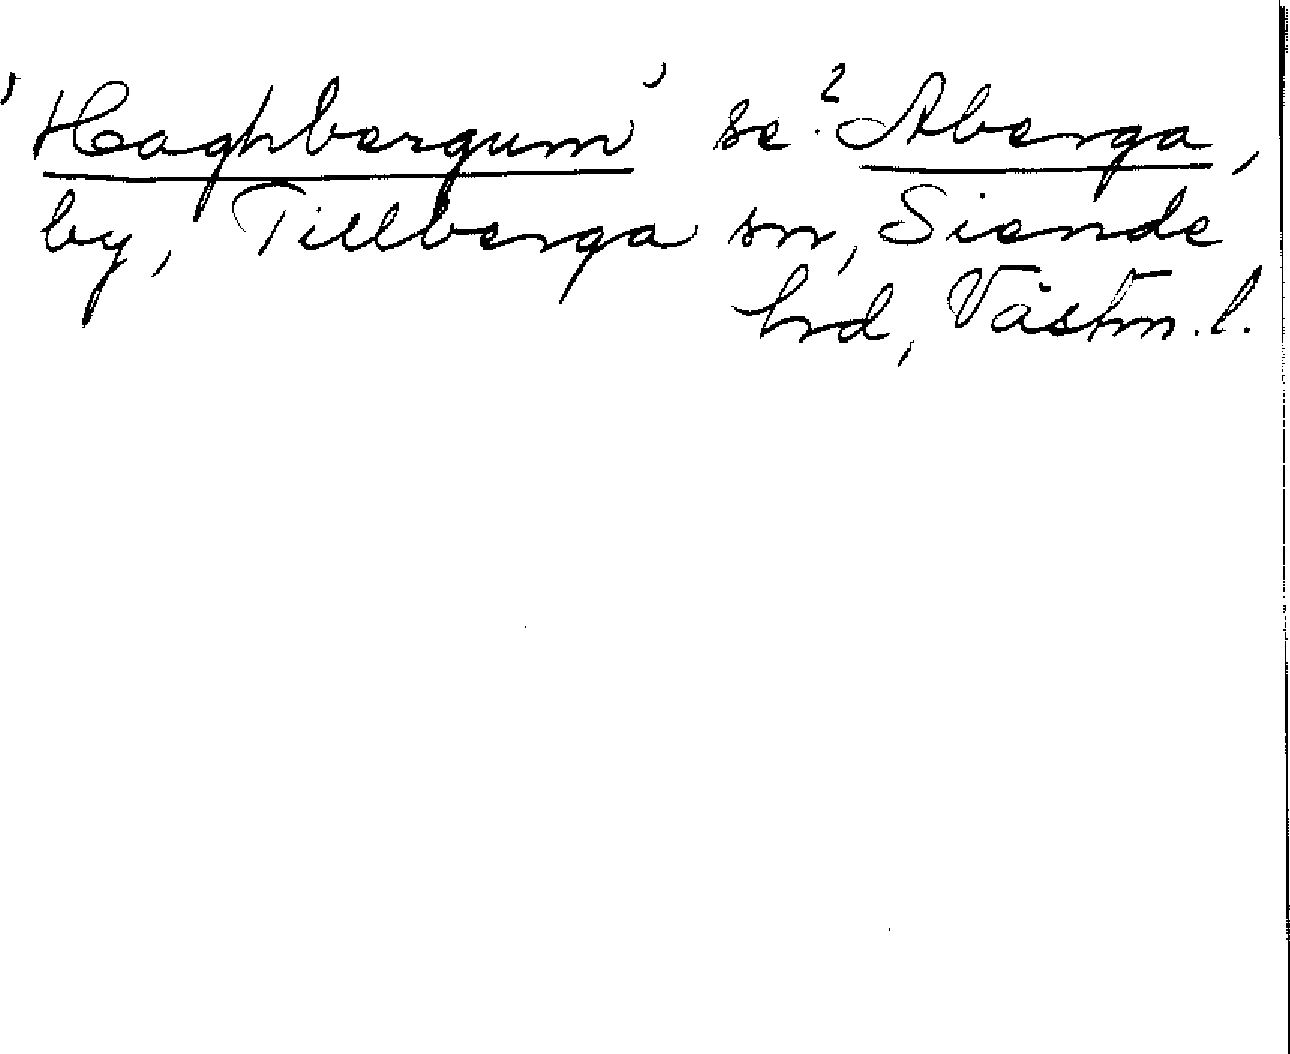 'Haghbergum' se? Aberga,
by, Tillberga sn, Siende
hrd, Västm. l.